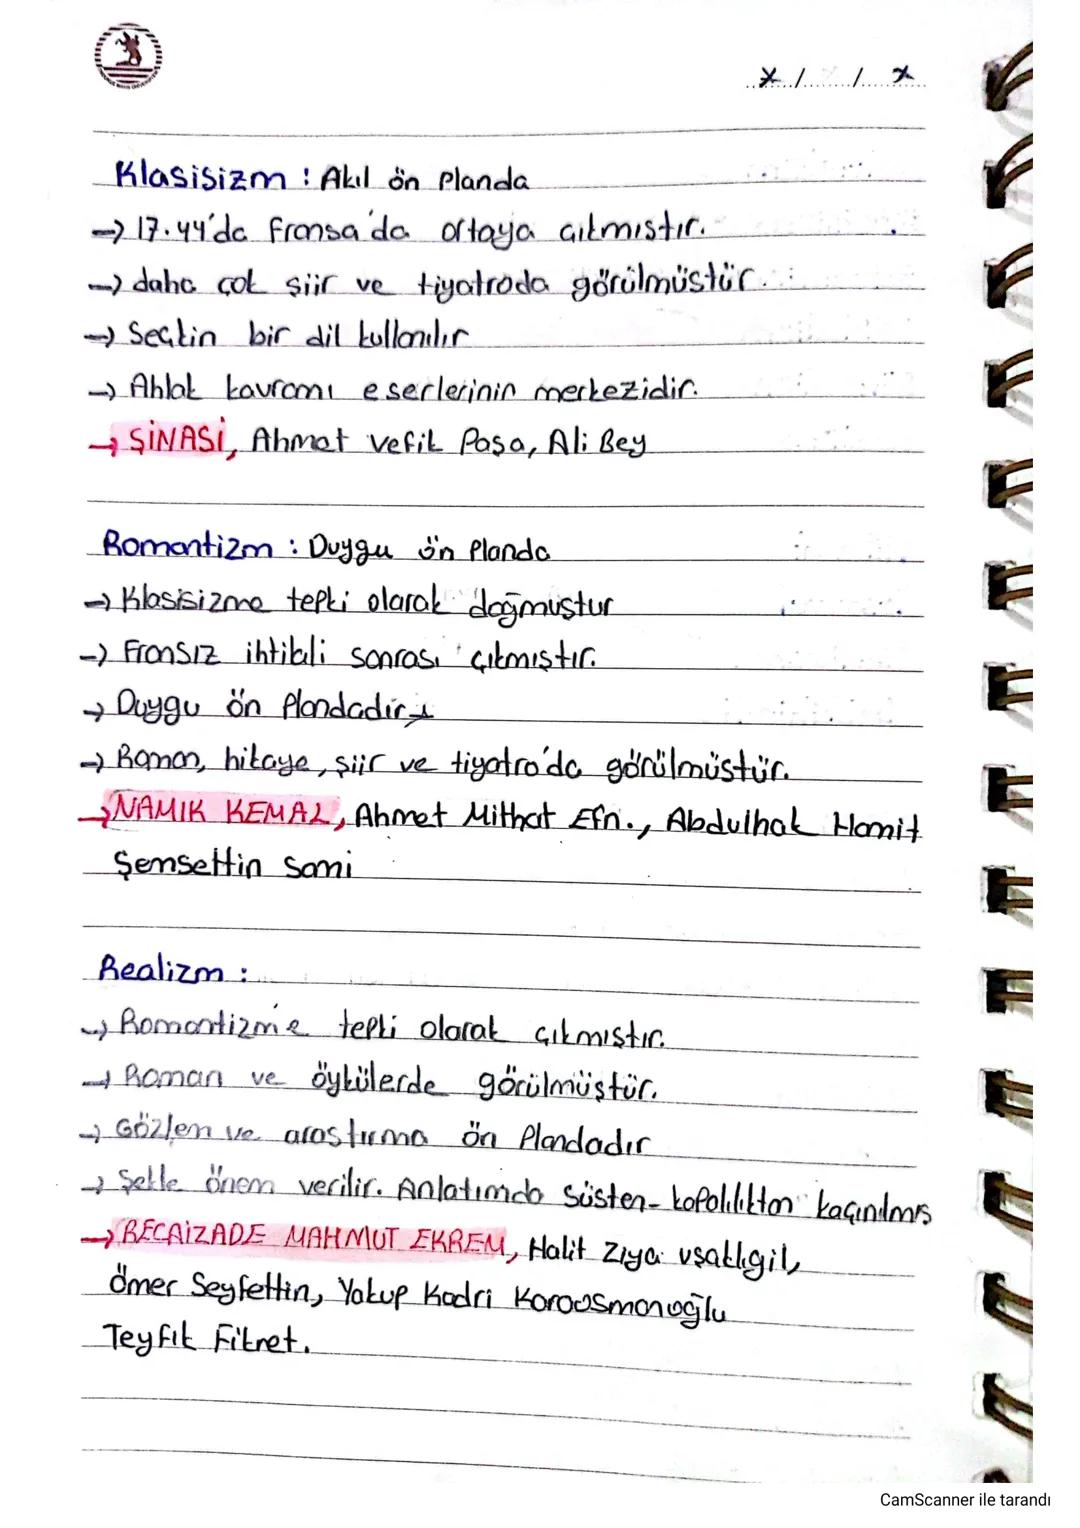 * / / *
Klasisizm : Akıl ön Planda
→ 17.yy'da fransa'da ortaya çıkmıştır.
→ daha çok şiir ve tiyatroda görülmüştür.
→ Seçkin bir dil kullanılır
→ Ahlak kavramı eserlerinin merkezidir.
→ ŞİNASİ, Ahmet vefik Paşa, Ali Bey
Romantizm : Duygu ön Planda
→ Klasisizme tepki olarak doğmuştur
→ Fransız ihtilali sonrası çıkmıştır.
→ Duygu ön Plandadır
→ Roman, hikaye, şiir ve tiyatro'da görülmüştür.
→ NAMIK KEMAL, Ahmet Mithat Efn., Abdulhak Hamit
Şemsettin Sami
Realizm :
→ Romantizm'e tepki olarak çıkmıştır.
→ Roman ve öykülerde görülmüştür.
→ Gözlem ve araştırma ön Plandadır
→ Şekle önem verilir. Anlatımda süsten-kapalılıktan kaçınılmış
→ RECAİZADE MAHMUT EKREM, Halit Ziya uşaklıgil,
Ömer Seyfettin, Yakup Kadri Karaosmanoğlu
Teyfik Fikret.
CamScanner ile tarandı